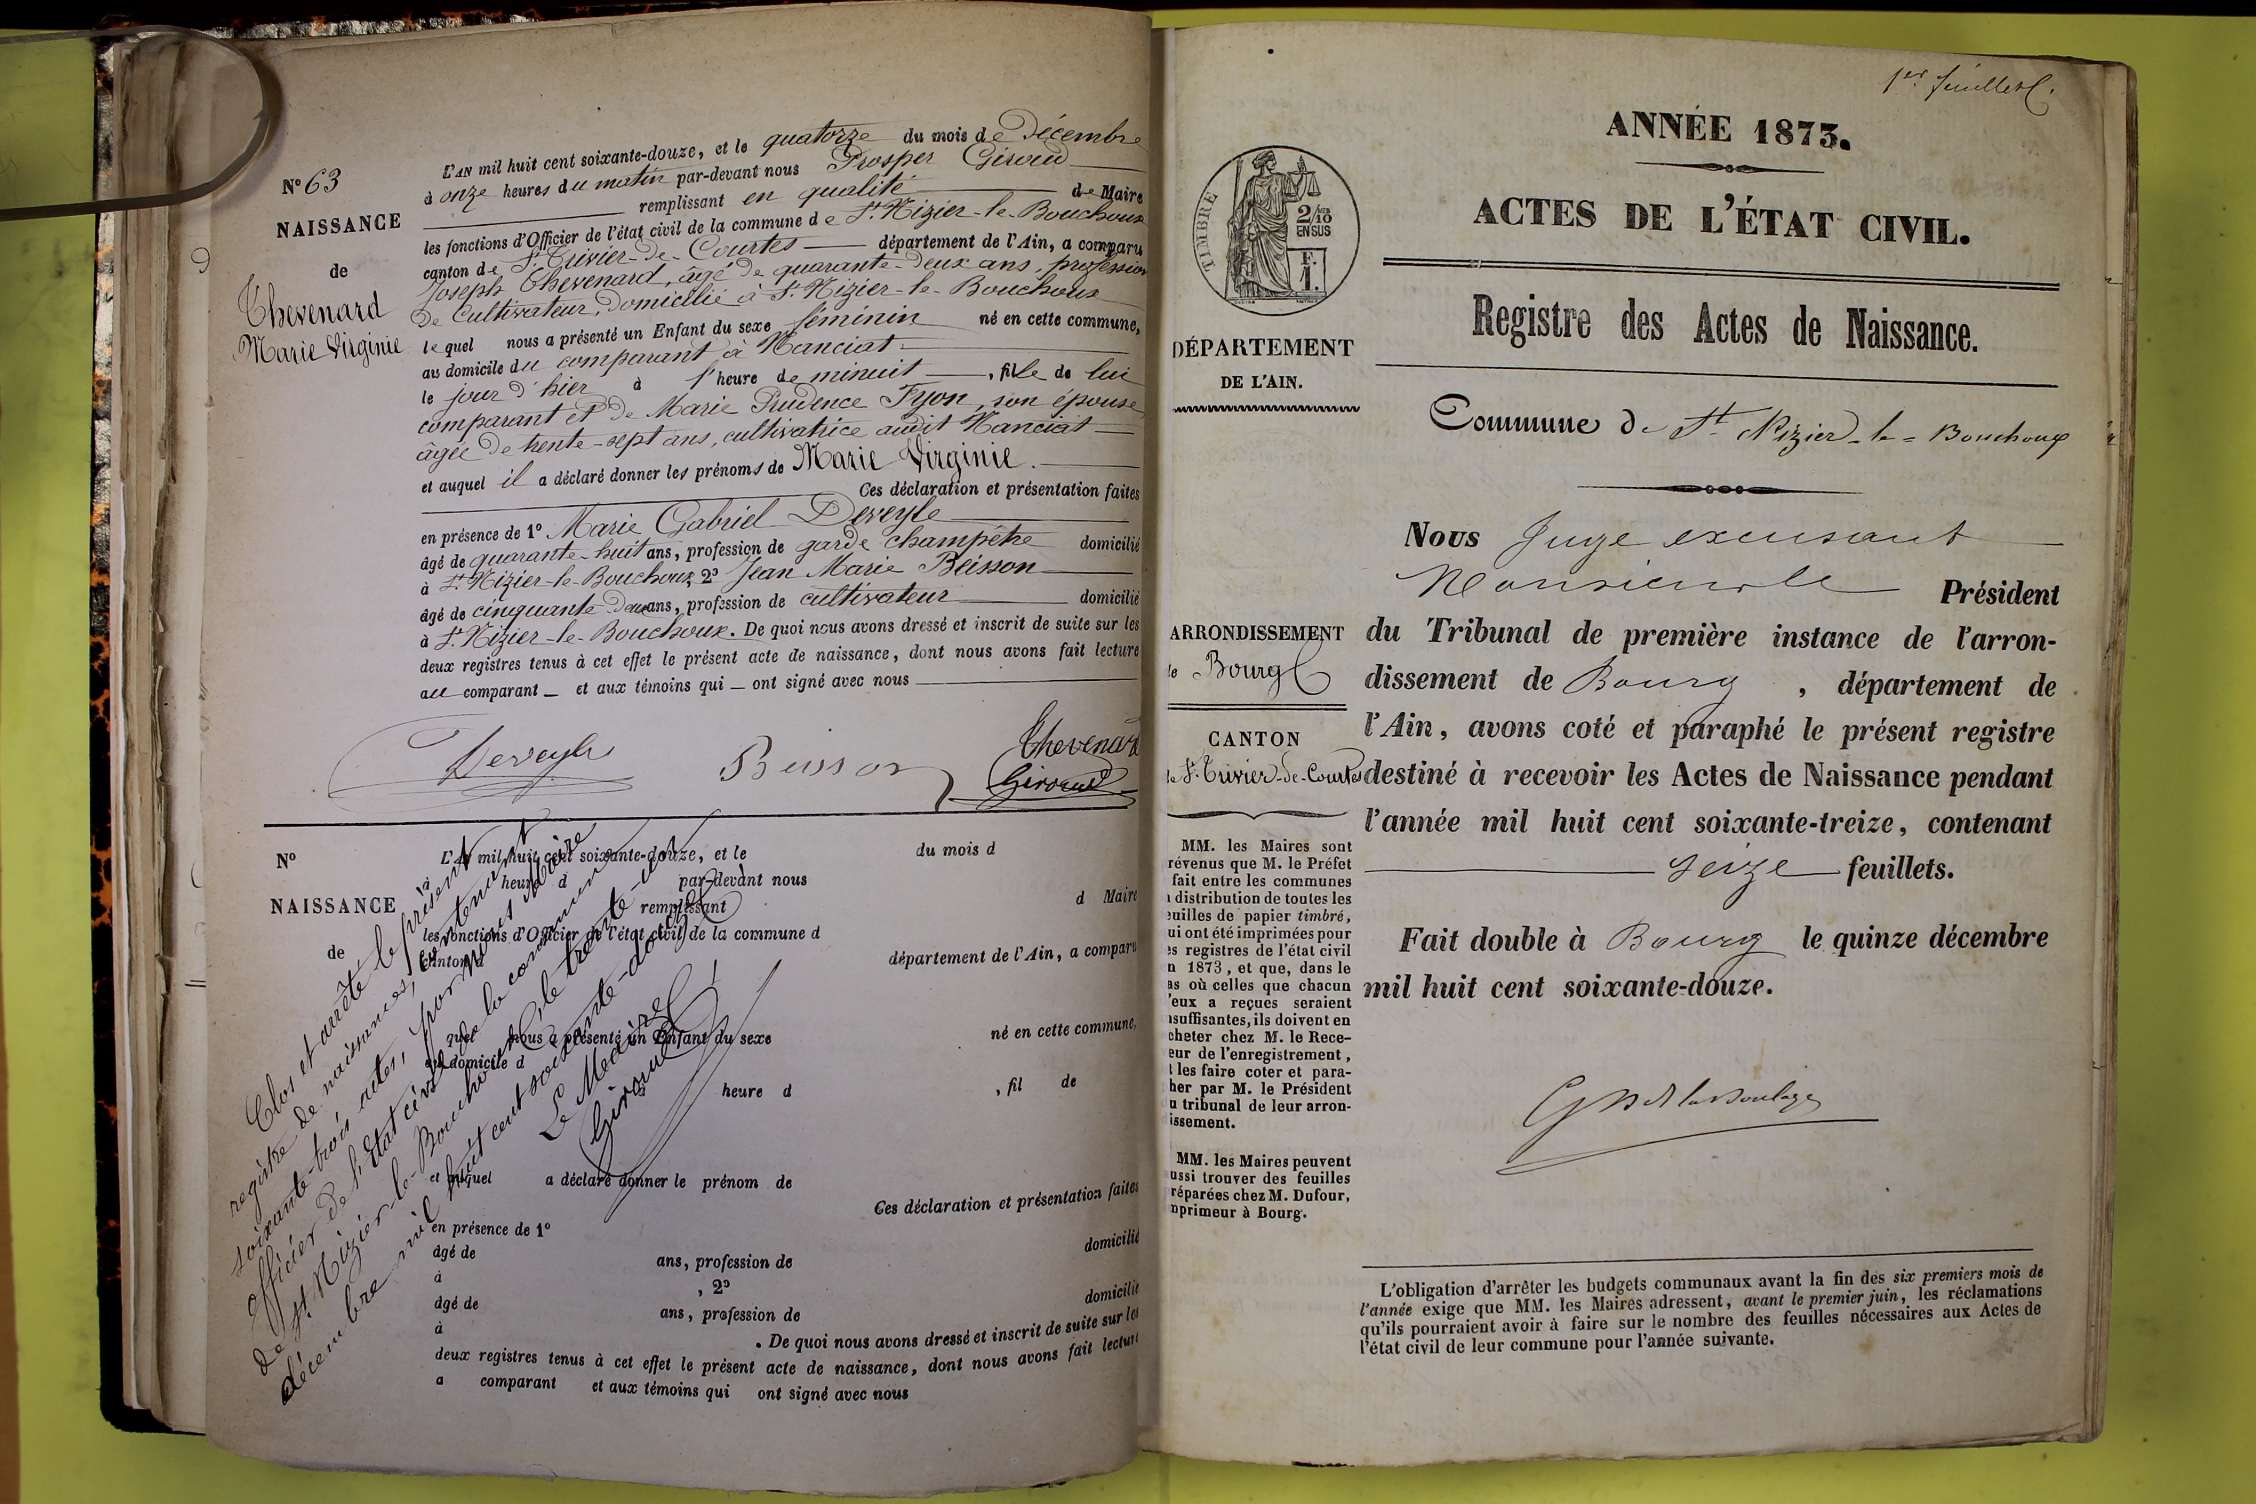 N° 63
NAISSANCE
de
Thevenard
Marie Virginie
L'AN mil huit cent soixante-douze, et le quatorze du mois de Décembre
à onze heures du matin par-devant nous Prosper Giroud
remplissant en qualité de Maire
les fonctions d'Officier de l'état civil de la commune de St. Nizier-le-Bouchoux
canton de St. Trivier-de-Courtes département de l'Ain, a comparu
Joseph Thevenard, âgé de quarante-deux ans, profession
de Cultivateur, domicilié à St. Nizier-le-Bouchoux
lequel nous a présenté un Enfant du sexe féminin né en cette commune,
au domicile du comparant à Nanciat
le jour d'hier à l'heure de minuit, fille de lui
comparant et de Marie Prudence Fyon, son épouse
âgée de trente-sept ans, cultivatrice audit Nanciat
et auquel il a déclaré donner les prénoms de Marie Virginie.
Ces déclaration et présentation faites
en présence de 1° Marie Gabriel Deveyle
âgé de quarante-huit ans, profession de garde champêtre domicilié
à St. Nizier-le-Bouchoux, 2° Jean Marie Beisson
âgé de cinquante-deux ans, profession de cultivateur domicilié
à St. Nizier-le-Bouchoux. De quoi nous avons dressé et inscrit de suite sur les
deux registres tenus à cet effet le présent acte de naissance, dont nous avons fait lecture
au comparant _ et aux témoins qui _ ont signé avec nous
Deveyle Beisson Thevenard
Giroud
N°
NAISSANCE
de
L'AN mil huit cent soixante-douze, et le du mois d
à heure d par-devant nous
remplissant d Maire
les fonctions d'Officier de l'état civil de la commune d
canton d département de l'Ain, a comparu
quel nous a présenté un Enfant du sexe né en cette commune,
au domicile d
heure d , fil de
et auquel a déclaré donner le prénom de
Ces déclaration et présentation faites
en présence de 1°
âgé de ans, profession de domicilié
à , 2°
âgé de ans, profession de domicilié
à . De quoi nous avons dressé et inscrit de suite sur les
deux registres tenus à cet effet le présent acte de naissance, dont nous avons fait lecture
a comparant et aux témoins qui ont signé avec nous
Clos et arrêté le présent
registre de naissances, contenant
soixante-trois actes, par nous Maire
Officier de l'état civil de la commune
de St. Nizier-le-Bouchoux, le trente-un
décembre mil huit cent soixante-douze
Le Maire
Giroud
1er feuillet.
ANNÉE 1873.
ACTES DE L'ÉTAT CIVIL.
Registre des Actes de Naissance.
TIMBRE
2/10
EN SUS
F.
1.
DÉPARTEMENT
DE L'AIN.
Commune de St. Nizier-le-Bouchoux
Nous Juge excusant
Monsieur le Président
du Tribunal de première instance de l'arron-
dissement de Bourg, département de
l'Ain, avons coté et paraphé le présent registre
destiné à recevoir les Actes de Naissance pendant
l'année mil huit cent soixante-treize, contenant
seize feuillets.
Fait double à Bourg le quinze décembre
mil huit cent soixante-douze.
ARRONDISSEMENT
de Bourg
CANTON
de St. Trivier-de-Courtes
MM. les Maires sont
révenus que M. le Préfet
fait entre les communes
distribution de toutes les
euilles de papier timbré,
ui ont été imprimées pour
es registres de l'état civil
n 1873, et que, dans le
as où celles que chacun
'eux a reçues seraient
nsuffisantes, ils doivent en
cheter chez M. le Rece-
eur de l'enregistrement,
t les faire coter et para-
her par M. le Président
u tribunal de leur arron-
issement.
MM. les Maires peuvent
ussi trouver des feuilles
réparées chez M. Dufour,
mprimeur à Bourg.
L'obligation d'arrêter les budgets communaux avant la fin des six premiers mois de
l'année exige que MM. les Maires adressent, avant le premier juin, les réclamations
qu'ils pourraient avoir à faire sur le nombre des feuilles nécessaires aux Actes de
l'état civil de leur commune pour l'année suivante.